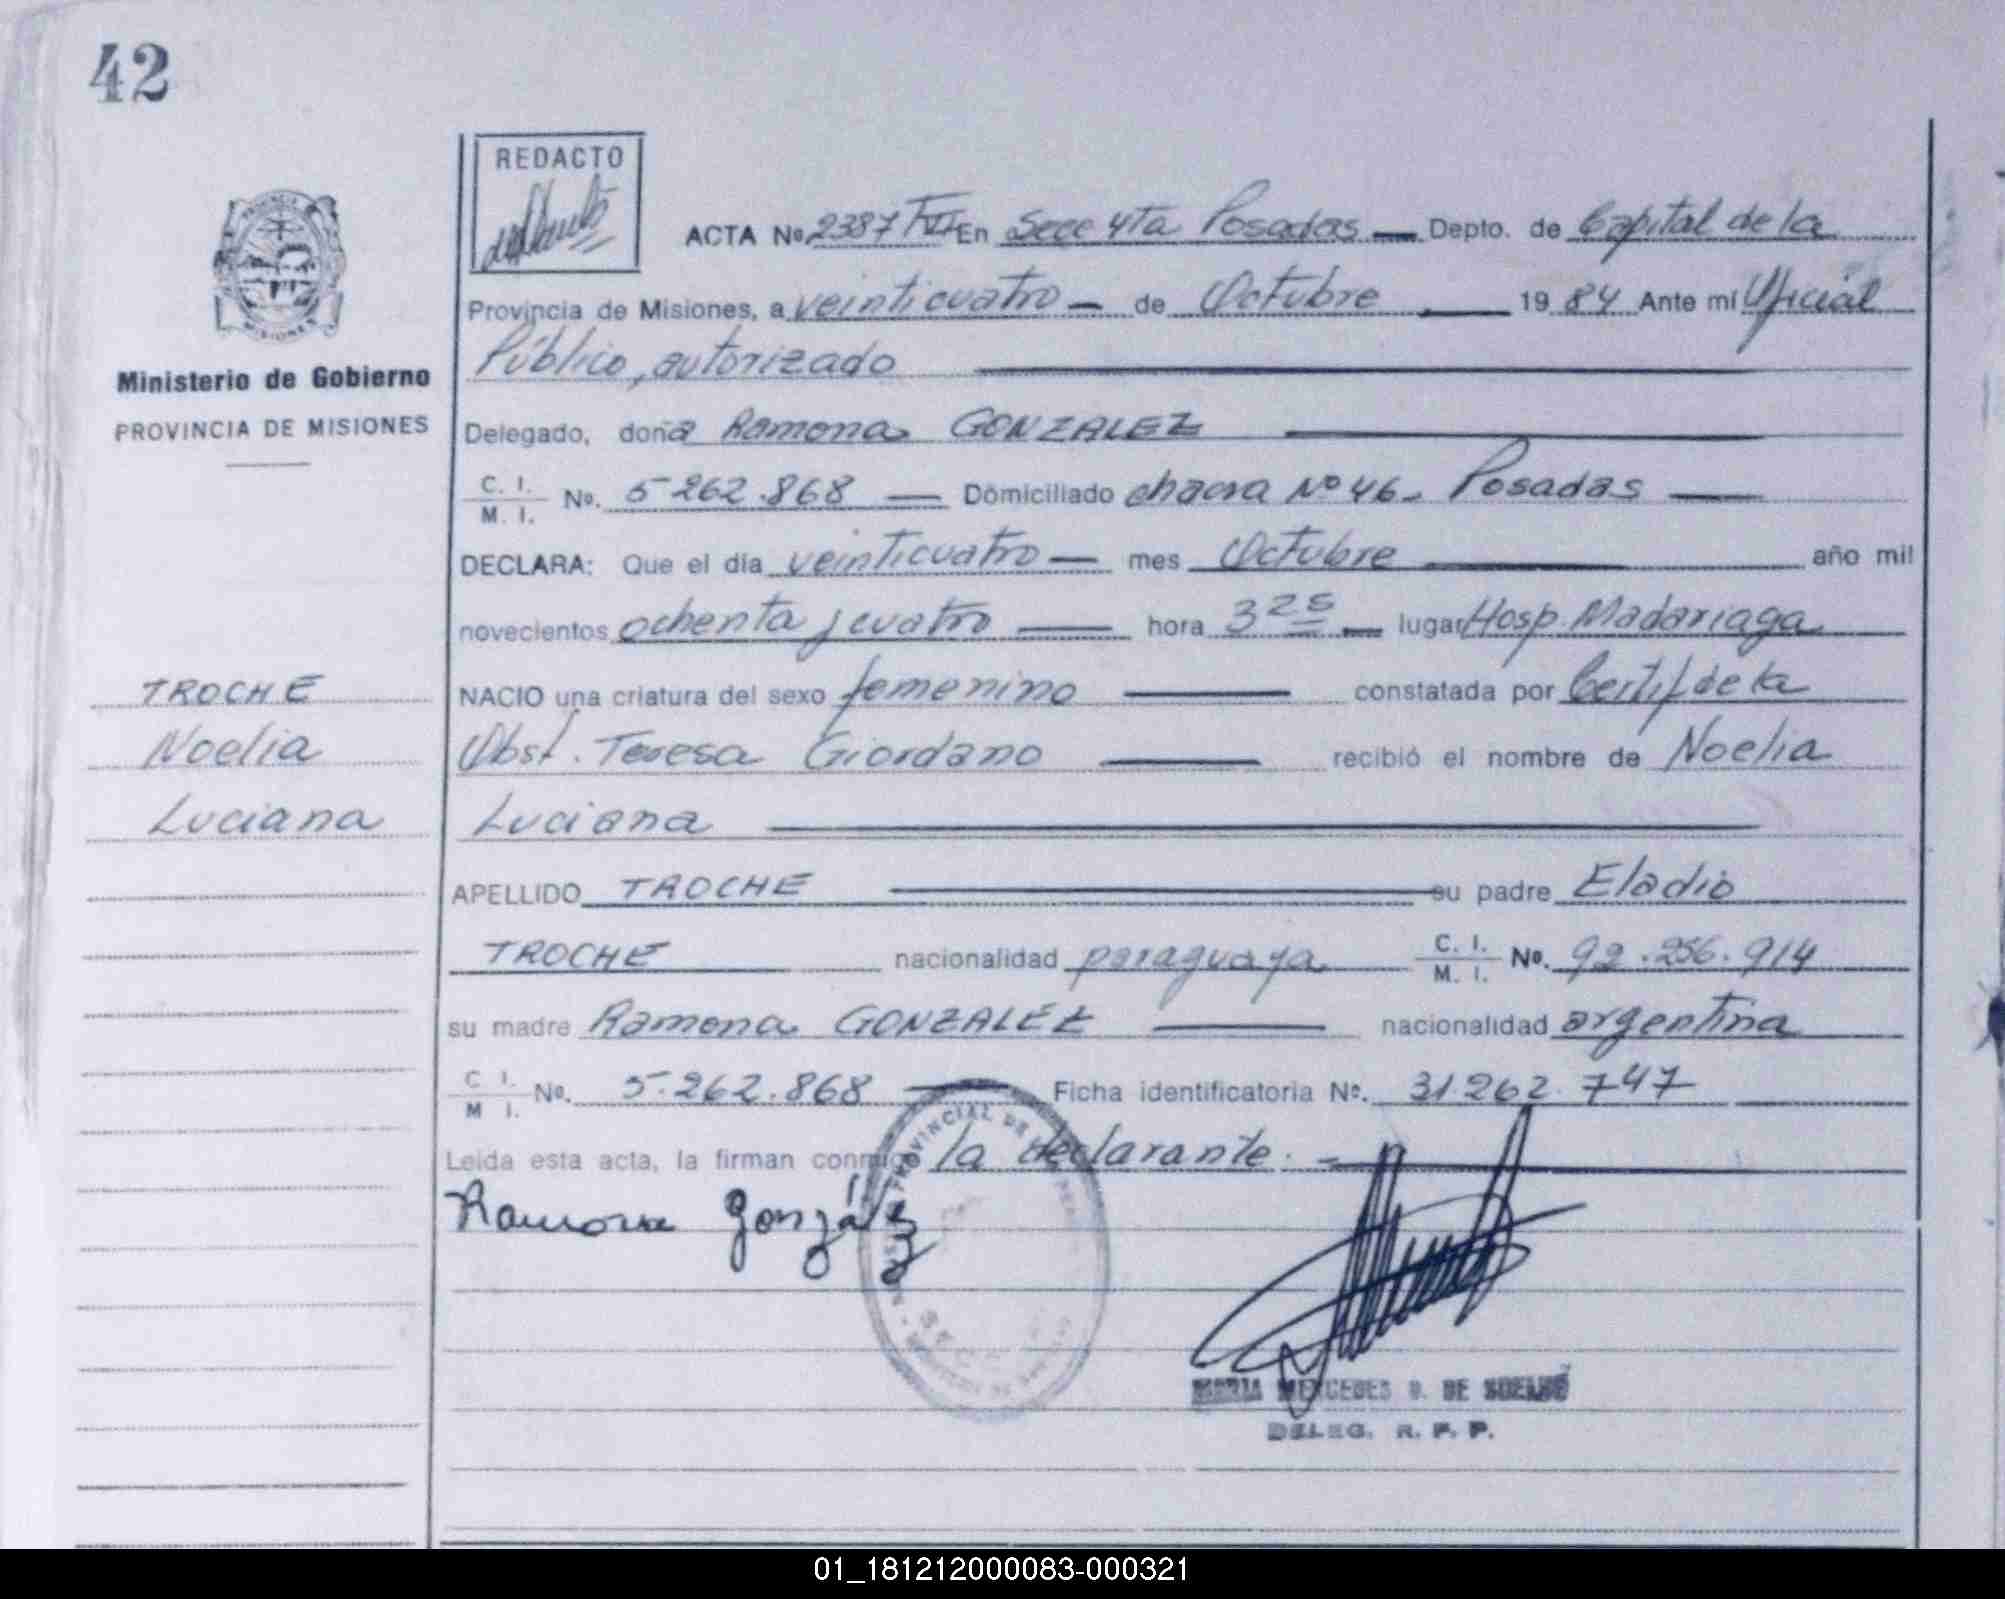 42
REDACTO
ACTA Nº 2387 TVI En Secc 4ta Posadas — Depto. de Capital de la
Provincia de Misiones, a veinticuatro — de Octubre — 19 84 Ante mí Oficial
Ministerio de Gobierno
PROVINCIA DE MISIONES
Público, autorizado
Delegado, doña Ramona GONZALEZ
C. I. / M. I. Nº. 5 262.868 — Domiciliado chacra Nº 46. Posadas —
DECLARA: Que el día veinticuatro — mes Octubre — año mil
novecientos ochenta y cuatro — hora 3 25 — lugar Hosp. Madariaga
TROCHE
NACIO una criatura del sexo femenino — constatada por Certif de la
Noelia
Obst. Teresa Giordano — recibió el nombre de Noelia
Luciana
Luciana
APELLIDO TROCHE — su padre Eladio
TROCHE nacionalidad paraguaya C. I. / M. I. Nº. 92.256.914
su madre Ramona GONZALEZ — nacionalidad argentina
C I. / M I. Nº. 5.262.868 — Ficha identificatoria Nº. 31.262.747
Leída esta acta, la firman conmigo la declarante. —
Ramona González
PROVINCIAL DE
SECC
MARIA MERCEDES D. DE
DELEG. R. P. P.
01_181212000083-000321